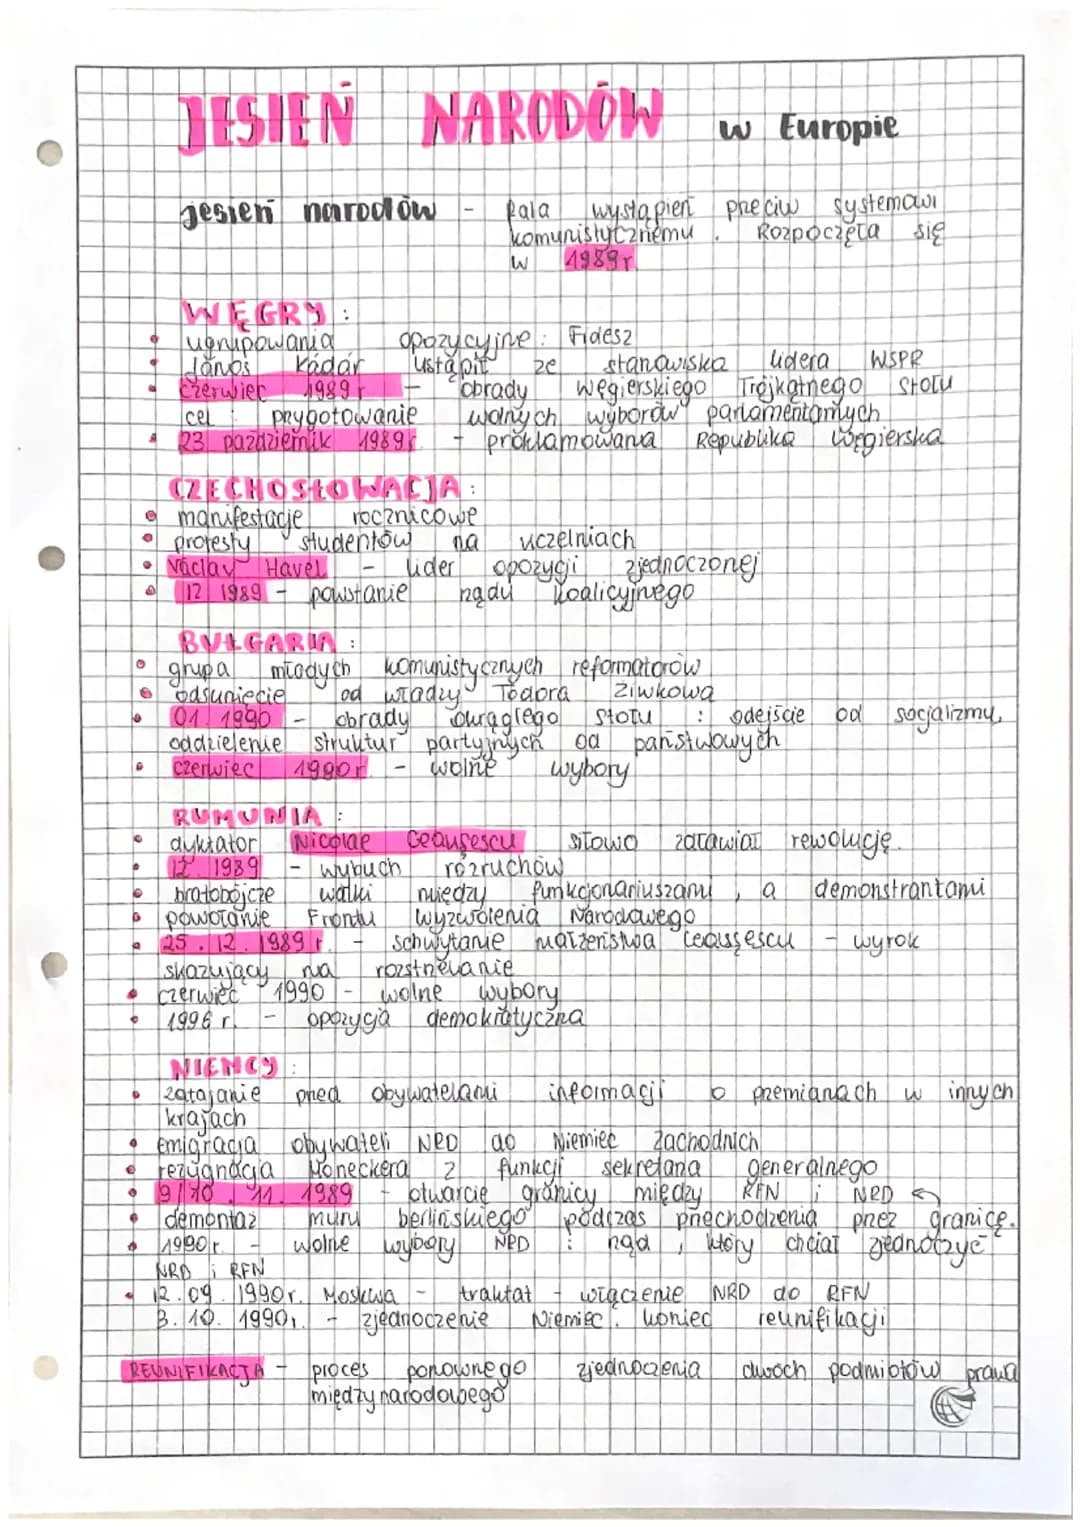 JESIEŃ NARODÓW w Europie
jesień narodów - Fala wystąpień przeciw systemowi
komunistycznemu. Rozpoczęła się
w 1989r
WĘGRY:
ugrupowania opozycyjne: Fidesz
János Kádár ustąpił ze stanowiska lidera WSPR
czerwiec 1989r - obrady węgierskiego Trójkątnego Stołu
cel: przygotowanie wolnych wyborów parlamentarnych
23 październik 1989r - proklamowana Republika Węgierska
CZECHOSŁOWACJA:
manifestacje rocznicowe
protesty studentów na uczelniach
Václav Havel - lider opozycji zjednoczonej
12 1989 - powstanie rządu koalicyjnego
BUŁGARIA:
grupa młodych komunistycznych reformatorów
odsunięcie od władzy Todora Żiwkowa
01. 1990 - obrady okrągłego stołu: odejście od socjalizmu,
oddzielenie struktur partyjnych od państwowych
czerwiec 1990r - wolne wybory
RUMUNIA:
dyktator Nicolae Ceauşescu siłowo załawiał rewolucję.
12. 1989 - wybuch rozruchów
bratobójcze walki między funkcjonariuszami, a demonstrantami
powołanie Frontu Wyzwolenia Narodowego
25. 12. 1989 r - schwytanie małżeństwa Ceauşescu - wyrok
skazujący na rozstrzelanie
czerwiec 1990 - wolne wybory
1996 r. - opozycja demokratyczna
NIEMCY:
zatajanie przed obywatelami informacji o przemianach w innych
krajach
emigracja obywateli NRD do Niemiec Zachodnich
rezygnacja Honeckera z funkcji sekretarza generalnego
9/10. 11. 1989 - otwarcie granicy między RFN i NRD
demontaż muru berlińskiego podczas przechodzenia przez granicę.
1990r. - wolne wybory NRD: rząd, który chciał zjednoczyć
NRD i RFN
12.09. 1990r. Moskwa - traktat - włączenie NRD do RFN
3. 10. 1990r. - zjednoczenie Niemiec. koniec reunifikacji
REUNIFIKACJA - proces ponownego zjednoczenia dwóch podmiotów prawa
międzynarodowego